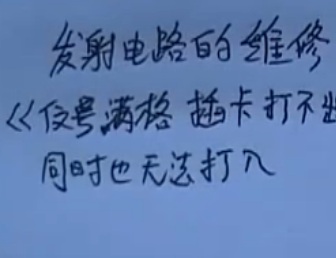 发射电路的维修
《信号满格 插卡打不出
同时也无法打入